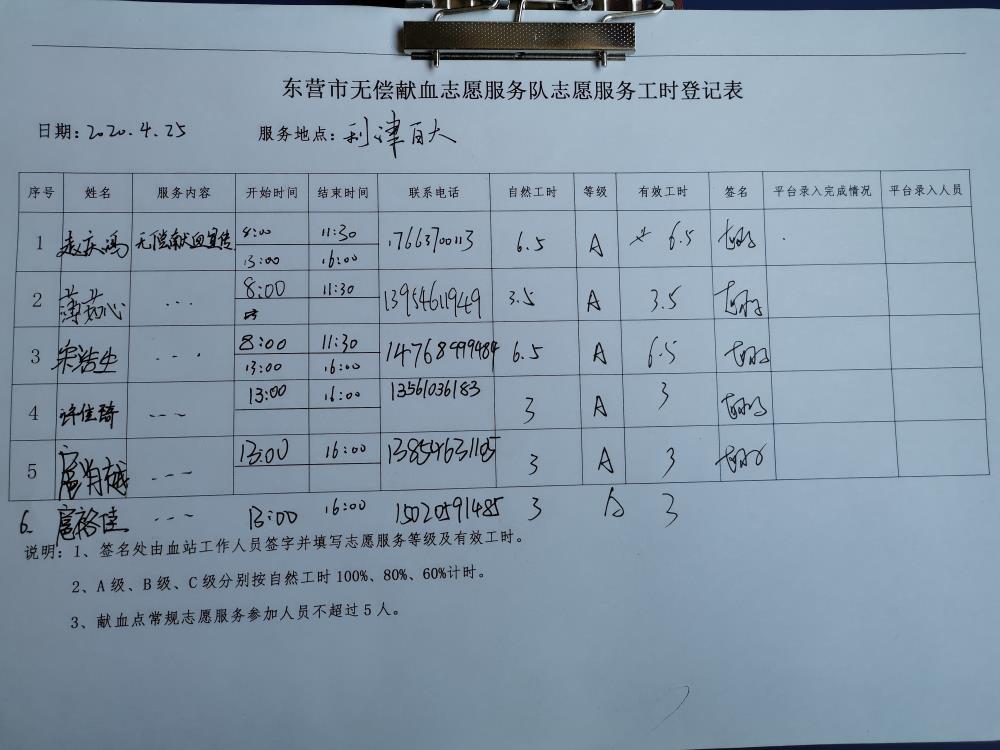 东营市无偿献血志愿服务队志愿服务工时登记表
日期:2020.4.25 服务地点:利津百大
序号 姓名 服务内容 开始时间 结束时间 联系电话 自然工时 等级 有效工时 签名 平台录入完成情况 平台录入人员
1 赵庆鸿 无偿献血宣传 8:00 11:30 17663700113 6.5 A 6.5
13:00 16:00
2 薄茹心 ... 8:00 11:30 13954611949 3.5 A 3.5
3 ... 8:00 11:30 14768499484 6.5 A 6.5
13:00 16:00
4 许佳琦 ... 13:00 16:00 13561036183 3 A 3
5 ... 13:00 16:00 13854631105 3 A 3
6. 扈裕佳 ... 13:00 16:00 15020591485 3 A 3
说明:1、签名处由血站工作人员签字并填写志愿服务等级及有效工时。
2、A级、B级、C级分别按自然工时100%、80%、60%计时。
3、献血点常规志愿服务参加人员不超过5人。